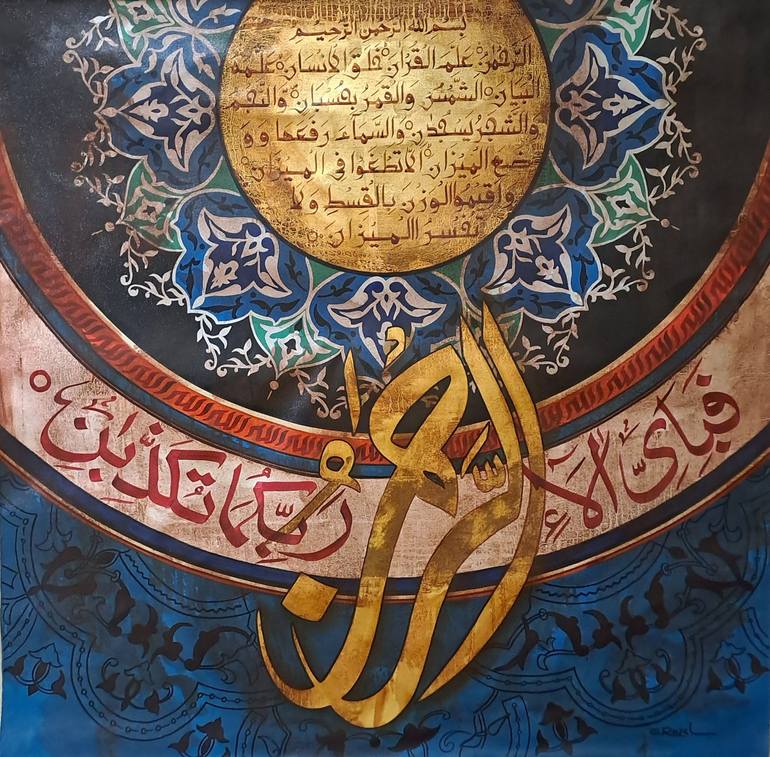 بسم الله الرحمن الرحيم
الرَّحْمٰنُ عَلَّمَ القُرْاٰنَ خَلَقَ الاِنْسَانَ عَلَّمَهُ
البَيَانَ الشَّمْسُ والقَمَرُ بِحُسْبَانٍ والنَّجْمُ
والشَّجَرُ يَسْجُدٰنِ والسَّمَآءَ رَفَعَهَا وو
ضع الميزان الا تطغوا في الميزان
واقيموا الوزن بالقسط ولا
تخسروا الميزان
فَبِاَىِّ اٰلَآءِ رَبِّكُمَا تُكَذِّبٰنِ
الرَّحْمٰنُ